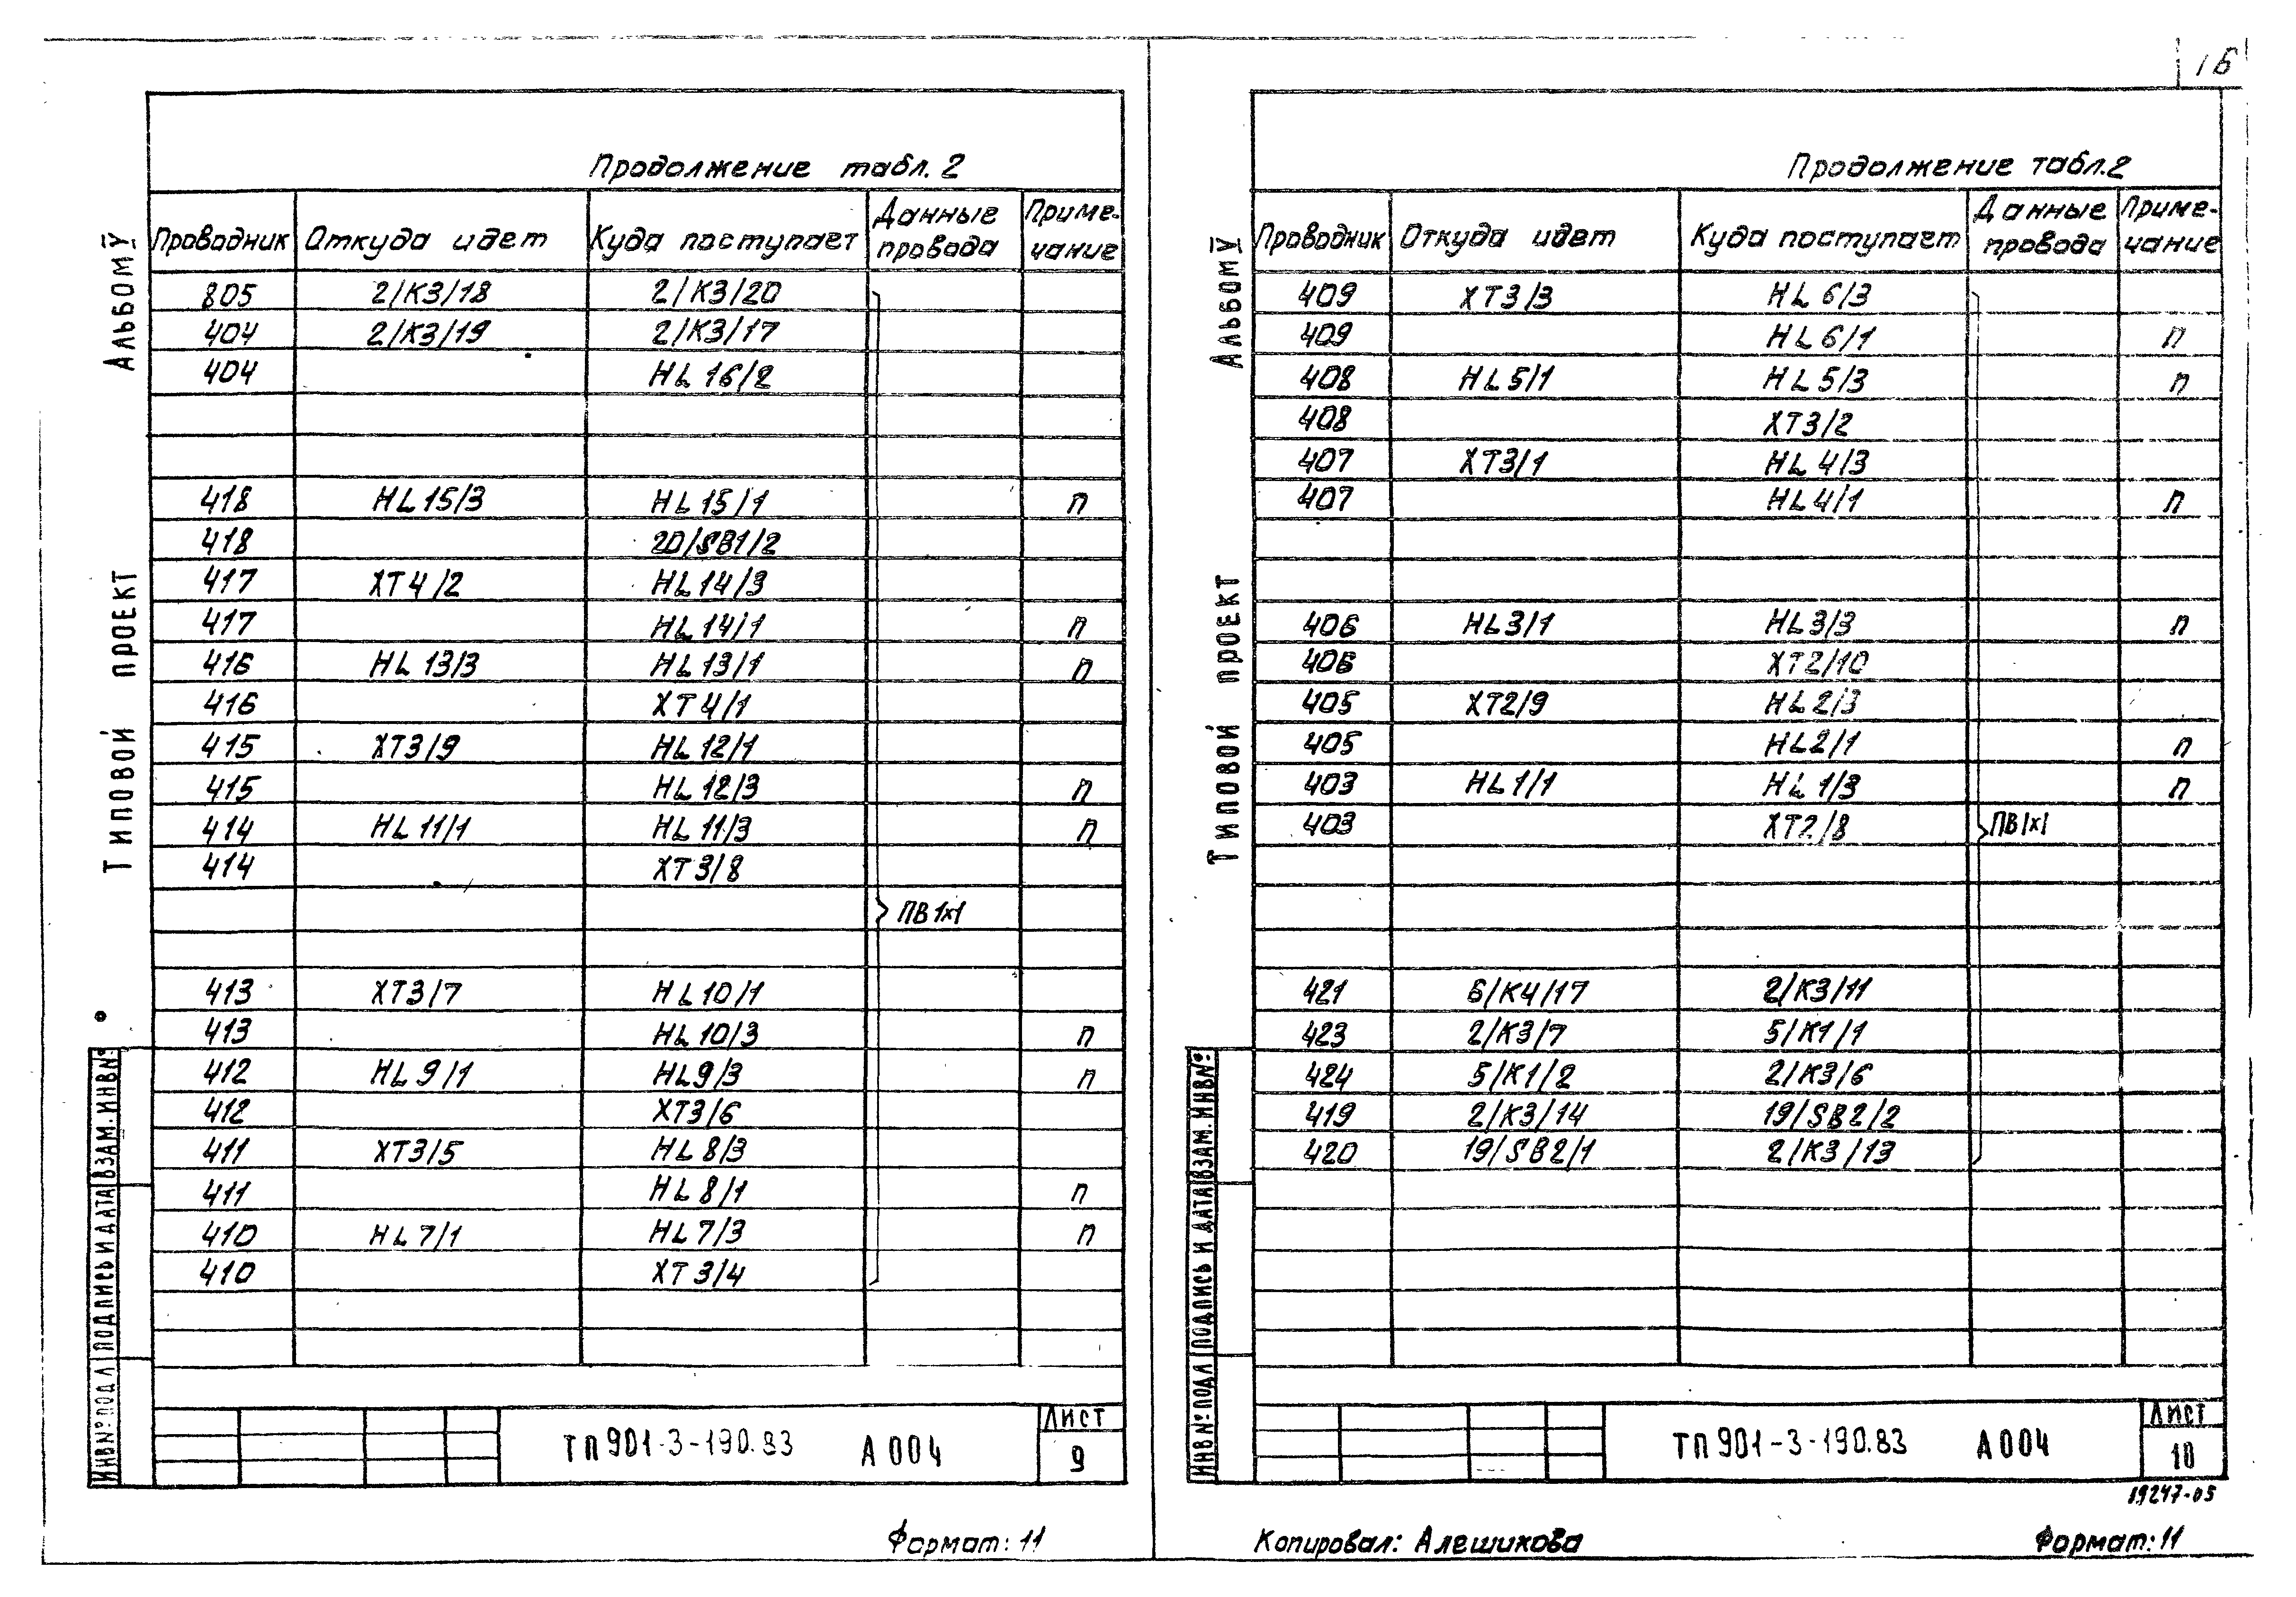 16
Продолжение табл. 2
Проводник Откуда идет Куда поступает Данные провода Примечание
805 2/К3/18 2/К3/20
404 2/К3/19 2/К3/17
404 HL 16/2
418 HL15/3 HL15/1 п
418 20/SB1/2
417 XT4/2 HL14/3
417 HL14/1 п
416 HL 13/3 HL13/1 п
416 XT4/1
415 XT3/9 HL12/1
415 HL12/3 п
414 HL 11/1 HL11/3 п
414 XT3/8
ПВ 1х1
413 XT3/7 HL10/1
413 HL10/3 п
412 HL9/1 HL9/3 п
412 XT3/6
411 XT3/5 HL8/3
411 HL8/1 п
410 HL7/1 HL7/3 п
410 XT3/4
Альбом V
Типовой проект
ИНВ№ПОДЛ ПОДПИСЬ И ДАТА ВЗАМ.ИНВ№
ТП 901-3-190.83 А004
Лист
9
Формат: 11
Продолжение табл.2
Проводник Откуда идет Куда поступает Данные провода Примечание
409 XT3/3 HL6/3
409 HL6/1 п
408 HL5/1 HL5/3 п
408 XT3/2
407 XT3/1 HL4/3
407 HL4/1 п
406 HL3/1 HL3/3 п
406 XT2/10
405 XT2/9 HL2/3
405 HL2/1 п
403 HL1/1 HL1/3 п
403 XT2/8 ПВ1х1
421 6/К4/17 2/К3/11
423 2/К3/7 5/К1/1
424 5/К1/2 2/К3/6
419 2/К3/14 19/SB2/2
420 19/SB2/1 2/К3/13
Альбом V
Типовой проект
ИНВ№ПОДЛ ПОДПИСЬ И ДАТА ВЗАМ.ИНВ№
ТП 901-3-190.83 А004
Лист
10
19247-05
Копировал: Алешикова
Формат: 11